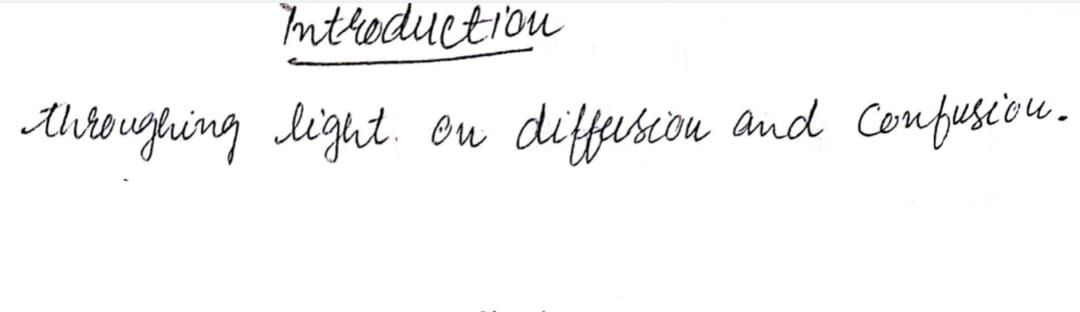 Introduction
throughing light. on diffusion and confusion.